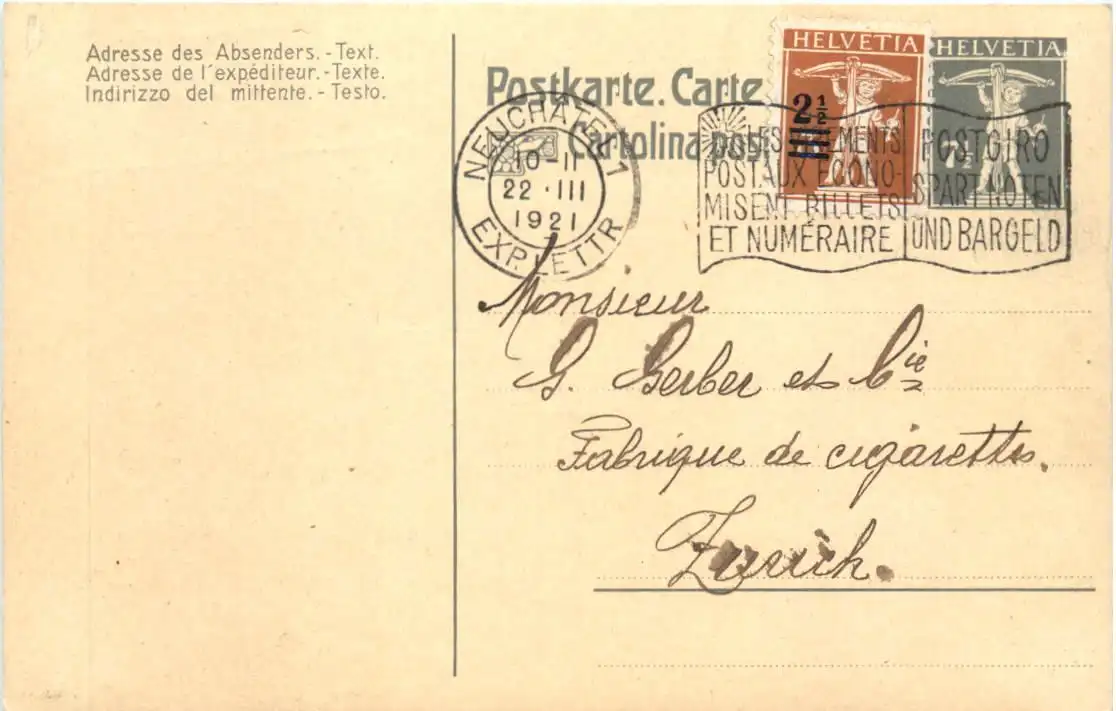 Adresse des Absenders.-Text.
Adresse de l'expéditeur.-Texte.
Indirizzo del mittente.-Testo.
Postkarte. Carte
Cartolina post
HELVETIA
2½
HELVETIA
7½
NEUCHATEL 1
10-11
22·III
1921
EXP. LETTR
LES PAIEMENTS
POSTAUX ECONO-
MISENT BILLETS
ET NUMÉRAIRE
POSTGIRO
SPART NOTEN
UND BARGELD
Monsieur
G. Gerber et Cie
Fabrique de cigarettes.
Zurich.